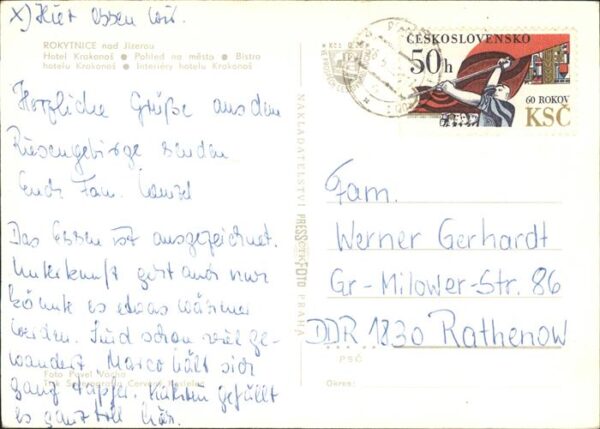 x) Hier essen wir.
ROKYTNICE nad Jizerou
Hotel Krakonoš • Pohled na město • Bistro
hotelu Krakonoš • Interiéry hotelu Krakonoš
Herzliche Grüße aus dem
Riesengebirge senden
Euch Fam.
Das Essen ist ausgezeichnet.
Unterkunft geht auch nur
könnte es etwas wärmer
werden. Sind schon viel ge-
wandert. Marco hält sich
ganz tapfer. gefällt
es ganz toll hier.
Foto Pavel Vácha
Tisk Severografia Červený Kostelec
NAKLADATELSTVÍ PRESSFOTO PRAHA
ČESKOSLOVENSKO
50h
60 ROKOV
KSČ
Fam.
Werner Gerhardt
Gr-Milower-Str. 86
DDR 1830 Rathenow
PSČ
Okres: